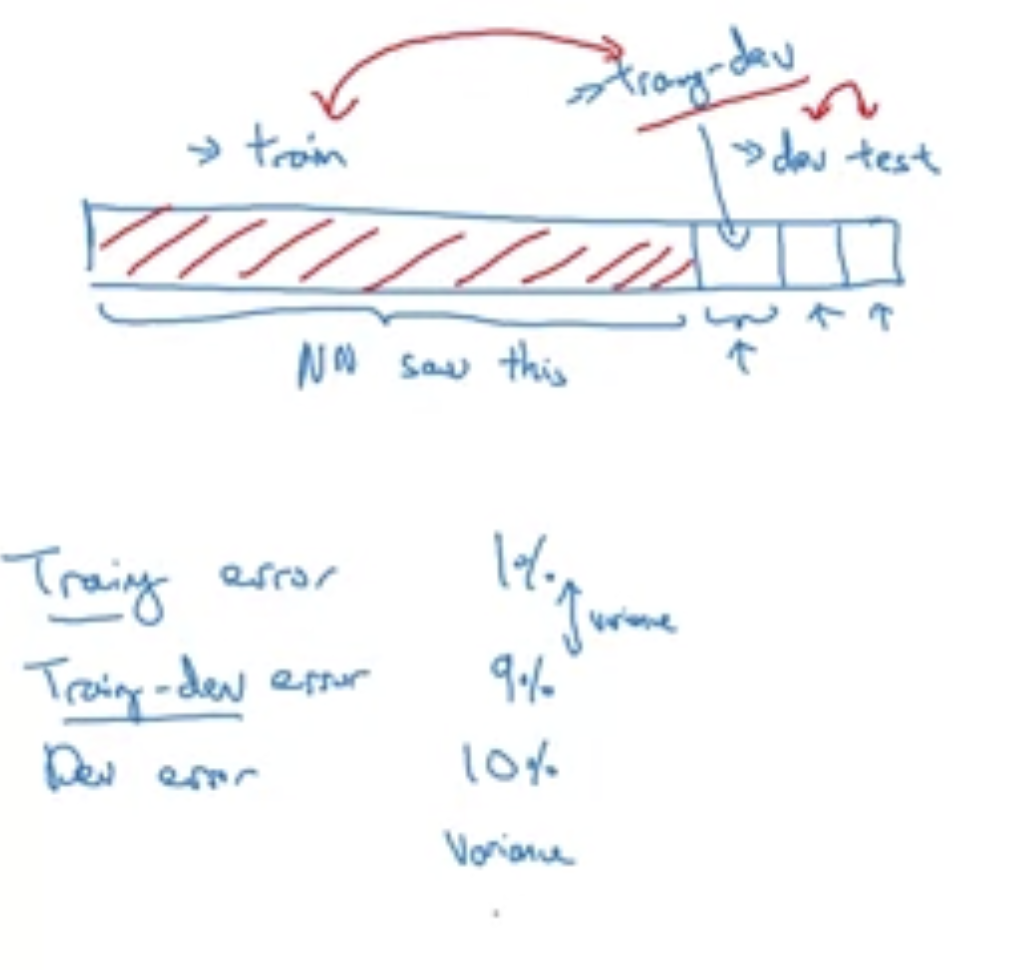 traing-dev
train
dev test
NN saw this
Traing error 1%
variance
Traing-dev error 9%
Dev error 10%
Variance